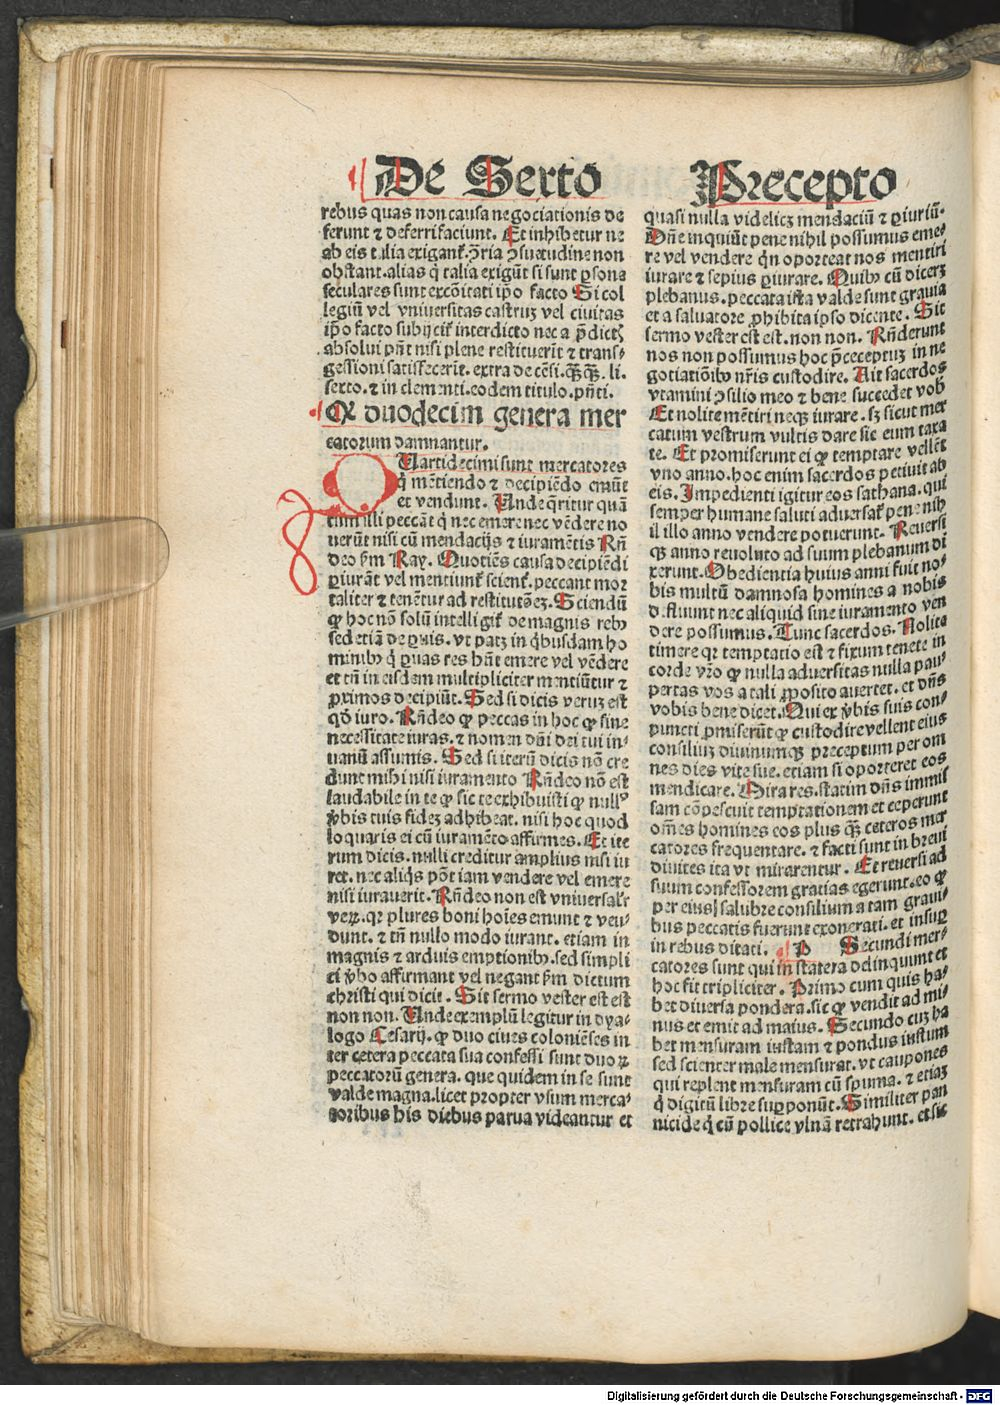 De Sexto Precepto
rebus quas non causa negociationis de
ferunt ⁊ deferri faciunt. Et inhibetur ne
ab eis talia exigant᷑. ꝯ̃ria ꝯsuetudine non
obstant. alias q̇ talia exigūt si sunt ꝑsone
seculares sunt excōitati ip̃o facto Si col
legiū vel vniuersitas castruꝫ vel ciuitas
ip̃o facto subijcit᷑ interdicto nec a p̃dictꝭ
absolui pñt nisi plene restituerīt ⁊ trans⸗
gessioni satisfecerit. extra de cēsi. qꝫ̄qꝫ̄. li.
sexto. ⁊ in clementi. eodem titulo. pñti.
Qꝫ duodecim genera mer
catorum damnantur.
QUartidecimi sunt mercatores
q̇ mētiendo ⁊ decipiēdo emūt
et vendunt. Unde q̄ritur quā
tum illi peccāt q̇ nec emere nec vēdere no
uerūt nisi cū mendacijs ⁊ iuramētis Rñ
deo ẜm Ray. Quotiēs causa decipiēdi
ꝑiurāt vel mentiunt᷑ scient᷑. peccant mor
taliter ⁊ tenētur ad restitutōeꝫ. Sciendū
ꝙ hoc nō solū intelligit᷑ de magnis rebꝰ
sed etiā de ꝑuis. vt patꝫ in q̇busdam ho
minibꝰ q̇ ꝑuas res hñt emere vel vēdere
et tñ in eisdem multipliciter mentiūtur ⁊
ꝓximos decipiūt. Sed si dicis veruꝫ est
qd̄ iuro. Rñdeo ꝙ peccas in hoc ꝙ sine
necessitate iuras. ⁊ nomen dñi dei tui in⸗
uanū assumis. Sed si iterū dicis nō cre
dunt mihi nisi iuramento Rñdeo nō est
laudabile in te ꝙ sic te exhibuisti ꝙ nullꝰ
v̓bis tuis fideꝫ adhibeat. nisi hoc quod
loquaris ei cū iuramēto affirmes. Et ite
rum dicis. nulli creditur amplius nisi iu
ret. nec aliq̇s pōt iam vendere vel emere
nisi iurauerit. Rñdeo non est vniuersalr̃
veꝝ. qꝛ plures boni hoīes emunt ⁊ ven⸗
dunt. ⁊ tñ nullo modo iurant. etiam in
magnis ⁊ arduis emptionibꝰ. sed simpli
ci v̓bo affirmant vel negant ẜm dictum
christi qui dicit. Sit sermo vester est est
non non. Unde exemplū legitur in dya⸗
logo Cesarij. ꝙ duo ciues colonieñses in
ter cetera peccata sua confessi sunt duoꝝ
peccatorū genera. que quidem in se sunt
valde magna. licet propter vsum merca⸗
toribus his diebus parua videantur et
quasi nulla videlicꝫ mendaciū ⁊ ꝑiuriū.
Dñe inquiūt pene nihil possumus eme⸗
re vel vendere q̇n oporteat nos mentiri
iurare ⁊ sepius ꝑiurare. Quibꝰ cū dicerꝫ
plebanus. peccata ista valde sunt grauia
et a saluatore ꝓhibita ipso dicente. Sit
sermo vester est est. non non. Rñderunt
nos non possumus hoc p̄ceptuꝫ in ne
gotiatiōibꝰ nr̃is custodire. Ait sacerdos
vtamini ꝯsilio meo ⁊ bene succedet vob̄
Et nolite mētiri neqꝫ iurare. sꝫ sicut mer
catum vestrum vultis dare sic eum taxa
te. Et promiserunt ei ꝙ temptare vellēt
vno anno. hoc enim sacerdos petiuit ab
eis. Impedienti igitur eos sathana. qui
semper humane saluti aduersat᷑ pene nih
il illo anno vendere potuerunt. Reuersi
qꝫ anno reuoluto ad suum plebanum di
xerunt. Obedientia huius anni fuit no⸗
bis multū damnosa homines a nobis
d.fluunt nec aliquid sine iuramento ven
dere possumus. Tunc sacerdos. Nolite
timere qꝛ temptatio est ⁊ fixum tenete in
corde vr̃o ꝙ nulla aduersitas nulla pau⸗
pertas vos a tali ꝓposito auertet. et dñs
vobis benedicet. Qui ex v̓bis suis con⸗
puncti ꝓmiserūt ꝙ custodire vellent eius
consiliuꝫ diuinumqꝫ preceptum per om
nes dies vite sue. etiam si oporteret eos
mendicare. Mira res. statim dñs immis
sam cōpescuit temptationem et ceperunt
om̄es homines eos plus qꝫ̄ ceteros mer
catores frequentare. ⁊ facti sunt in breui
diuites ita vt mirarentur. Et reuersi ad
suum confessorem gratias egerunt. eo ꝙ
per eius salubre consilium a tam graui⸗
bus peccatis fuerunt exonerati. et insuꝑ
in rebus ditati. D Secundi mer⸗
catores sunt qui in statera delinquunt et
hoc fit tripliciter. Primo cum quis ha⸗
bet diuersa pondera. sic ꝙ vendit ad mi⸗
nus et emit ad maius. Secundo cuꝫ ha
bet mensuram iustam ⁊ pondus iustum
sed scienter male mensurat. vt caupones
qui replent mensuram cū spuma. ⁊ etiaꝫ
q̇ digitū libre suꝑponūt. Similiter pan
nicide q̇ cū pollice vlnā retrahunt. et sic
Digitalisierung gefördert durch die Deutsche Forschungsgemeinschaft - DFG